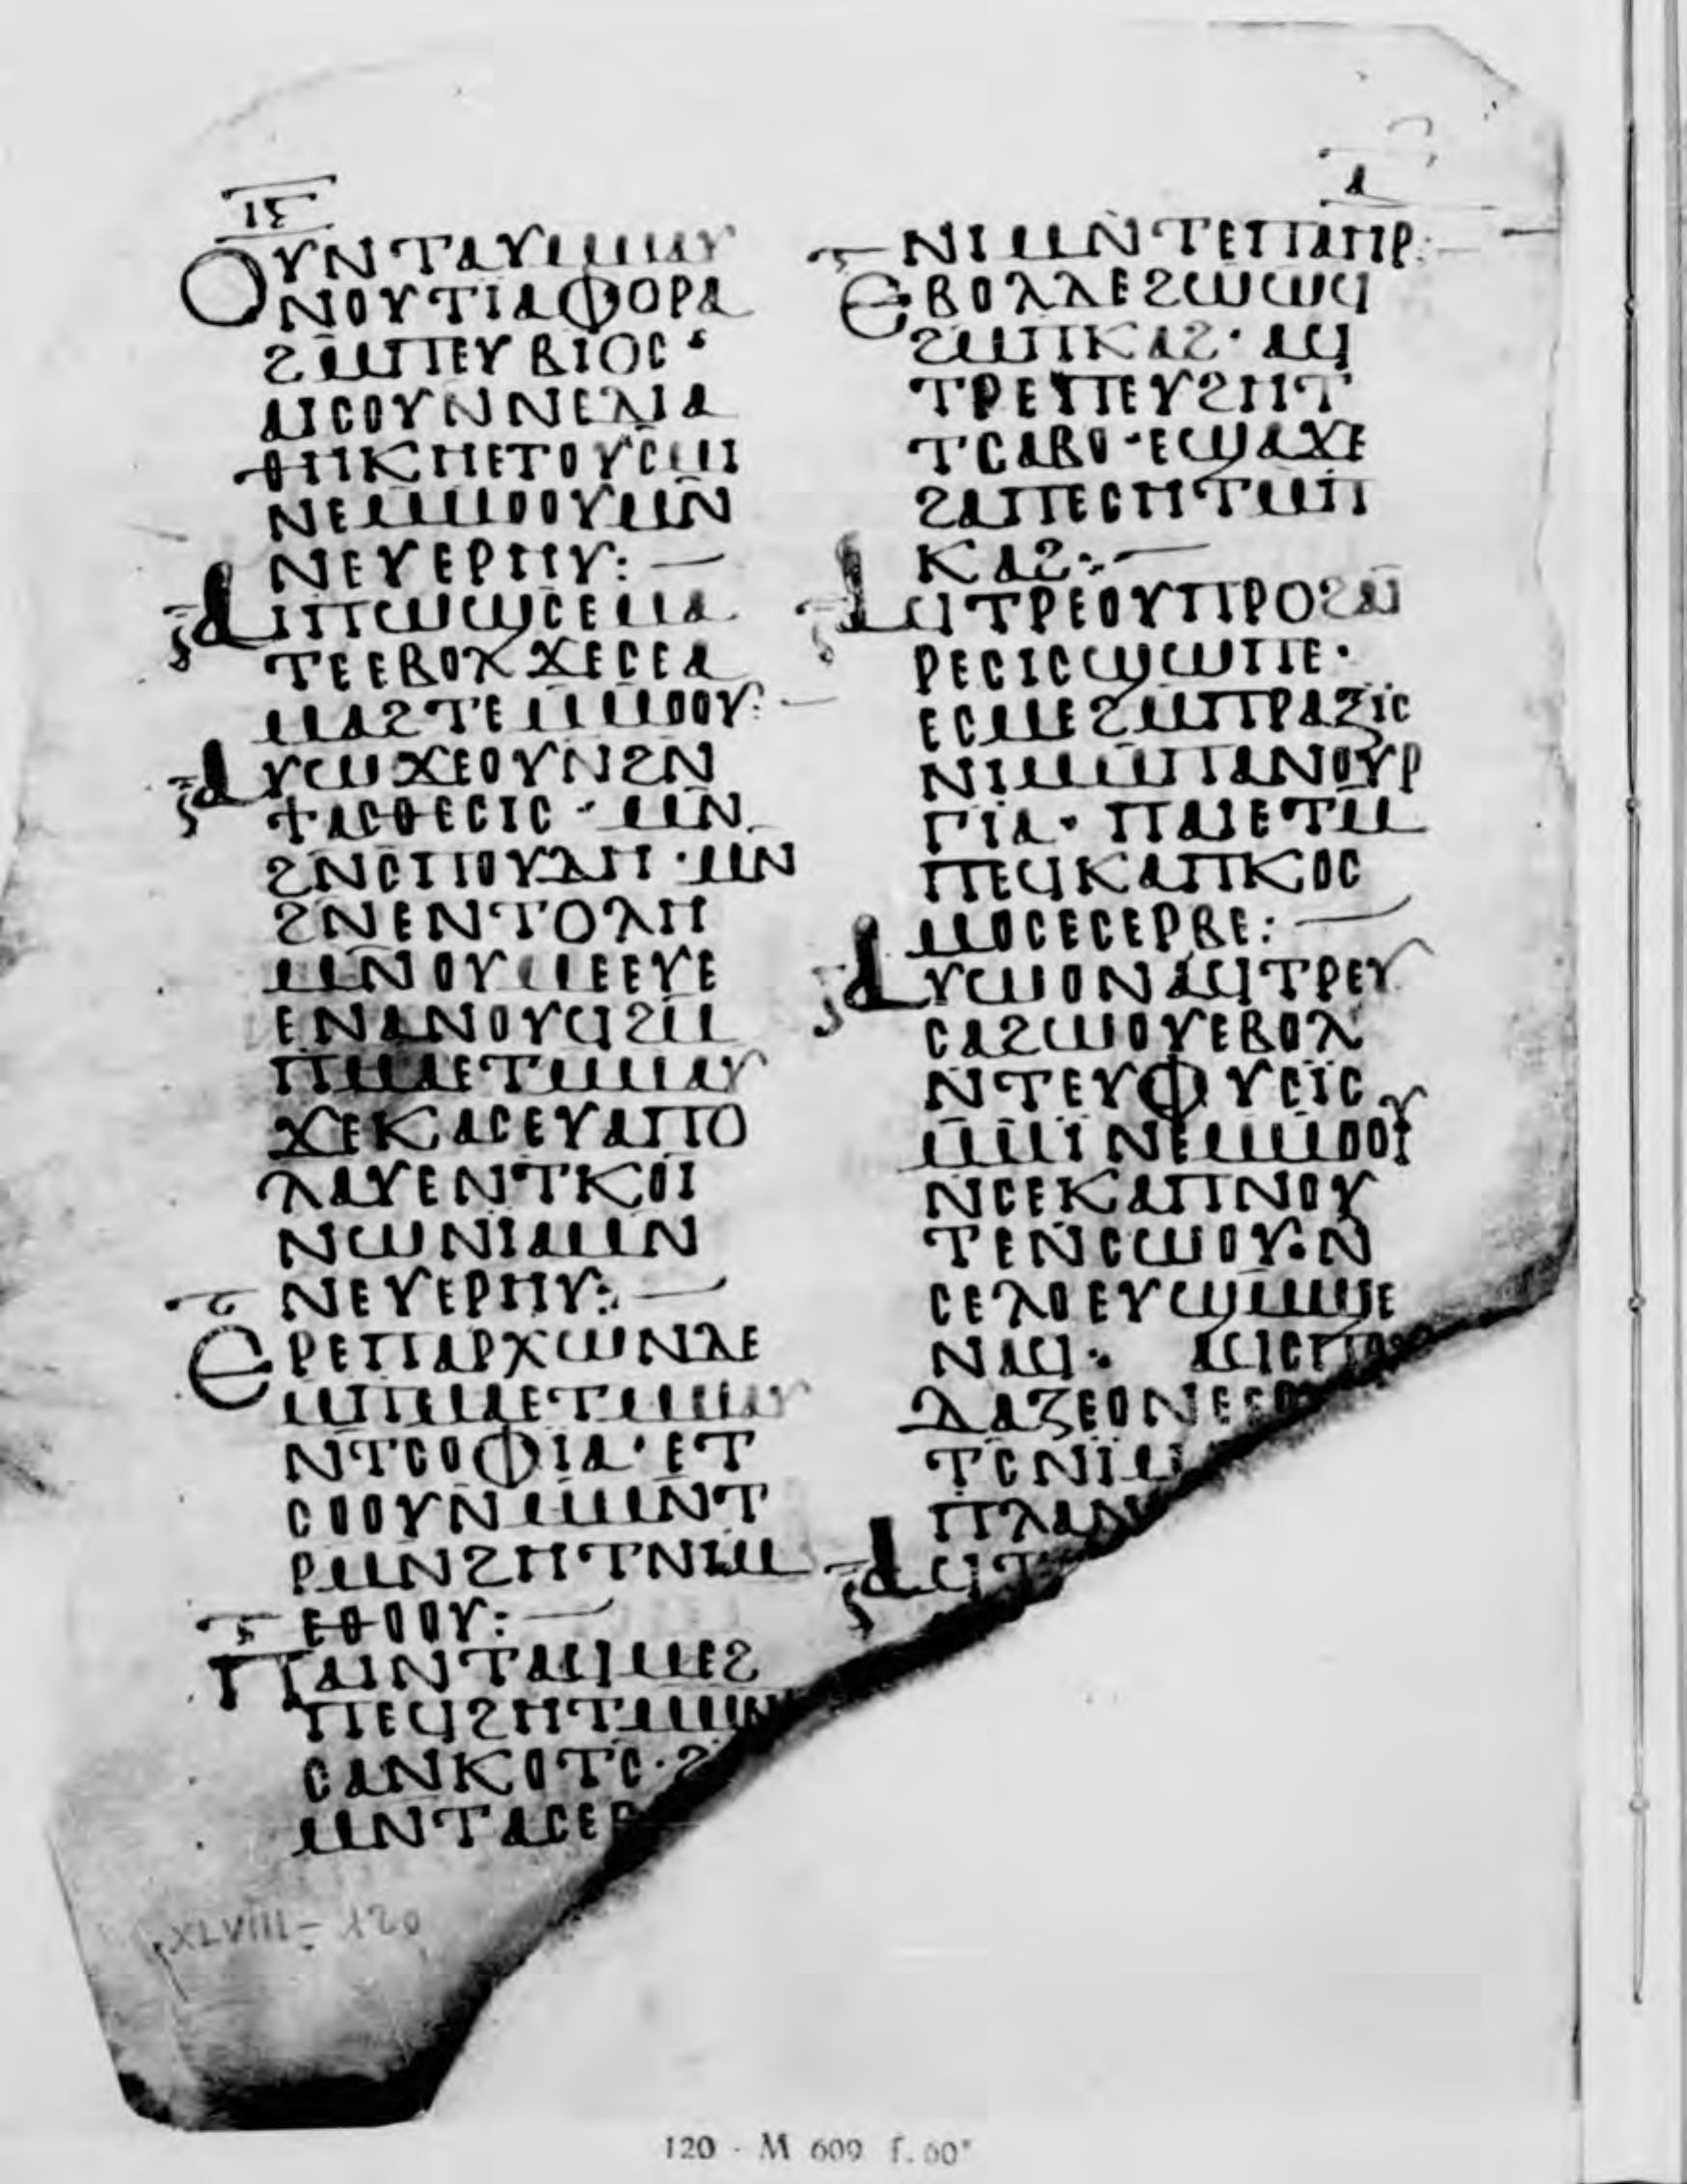 ⲓⲋ
ⲟⲩⲛⲧⲁⲩⲙⲙⲁⲩ
ⲛⲟⲩⲧⲓⲁⲫⲟⲣⲁ
ϩⲙⲡⲉⲩⲃⲓⲟⲥ·
ⲁⲓⲥⲟⲩⲛⲛⲉⲇⲓⲁ
ⲑⲏⲕⲏⲉⲧⲟⲩⲥⲙⲓ
ⲛⲉⲙⲙⲟⲟⲩⲙⲛ
ⲛⲉⲩⲉⲣⲏⲩ:—
ⲁⲓⲡⲱϣⲥⲉⲙⲁ
ⲧⲉⲉⲃⲟⲗϫⲉⲥⲉⲁ
ⲙⲁϩⲧⲉⲙⲙⲟⲟⲩ:—
ⲁⲩⲱϫⲉⲟⲩⲛϩⲛ
ϯⲁⲥⲑⲉⲥⲓⲥ·ⲙⲛ
ϩⲛⲥⲡⲟⲩⲇⲏ·ⲙⲛ
ϩⲛⲉⲛⲧⲟⲗⲏ
ⲙⲛⲟⲩⲙⲉⲉⲩⲉ
ⲉⲛⲁⲛⲟⲩϥϩⲙ
ⲡⲙⲁⲉⲧⲙⲙⲁⲩ
ϫⲉⲕⲁⲥⲉⲩⲁⲡⲟ
ⲗⲁⲩⲉⲛⲧⲕⲟⲓ
ⲛⲱⲛⲓⲁⲙⲛ
ⲛⲉⲩⲉⲣⲏⲩ:—
ⲉⲣⲉⲡⲁⲣⲭⲱⲛⲇⲉ
ⲙⲡⲙⲁⲉⲧⲙⲙⲁⲩ
ⲛⲧⲥⲟⲫⲓⲁ·ⲉⲧ
ⲥⲟⲟⲩⲛⲙⲙⲛⲧ
ⲣⲙⲛϩⲏⲧⲛⲓⲙ
ⲉⲑⲟⲟⲩ:—
ⲡⲁⲓⲛⲧⲁϥⲙⲉϩ
ⲡⲉϥϩⲏⲧⲙⲙⲛ
ⲥⲁⲛⲕⲟⲧⲥ·ϩ
ⲙⲛⲧⲁⲥⲉⲃ
ⲛⲓⲙⲛⲧⲉⲡⲁⲏⲣ:—
ⲉⲃⲟⲗⲇⲉϩⲱⲱϥ
ϩⲙⲡⲕⲁϩ·ⲁϥ
ⲧⲣⲉⲡⲉⲩϩⲏⲧ
ⲧⲥⲁⲃⲟ·ⲉϣⲁϫⲉ
ϩⲁⲡⲉⲥⲏⲧⲙⲡ
ⲕⲁϩ:—
ⲁϥⲧⲣⲉⲟⲩⲡⲣⲟϩⲁⲓ
ⲣⲉⲥⲓⲥϣⲱⲡⲉ·
ⲉⲥⲙⲉϩⲙⲡⲣⲁⲝⲓⲥ
ⲛⲓⲙⲙⲡⲁⲛⲟⲩⲣ
ⲅⲓⲁ·ⲡⲁⲓⲉⲧⲙ
ⲡⲉϥⲕⲁⲡⲕⲟⲥ
ⲙⲟⲥⲉⲥⲉⲣϥⲉ:—
ⲁⲩⲱⲟⲛⲁϥⲧⲣⲉⲩ
ⲥⲁϩⲱⲟⲩⲉⲃⲟⲗ
ⲛⲧⲉⲩⲫⲩⲥⲓⲥ
ⲙⲙⲓⲛⲉⲙⲙⲟⲟⲩ
ⲛⲥⲉⲕⲁⲡⲛⲟⲩ
ⲧⲉⲛⲥⲱⲟⲩ·ⲛ
ⲥⲉⲗⲟⲉⲩϣⲙϣⲉ
ⲛⲁϥ:
ⲧⲥⲛⲓⲙ
ⲡⲗⲁⲛ
ⲁϥⲧ
XLVIII - 120
120 - M 609 f. 60ᵛ